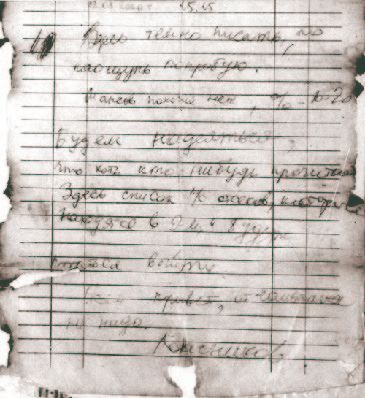 15.15
Здесь темно писать, но
наощупь попробую.
Шансов похоже нет, % 10-20
Будем надеяться,
что хоть кто-нибудь прочитает
Здесь список л/с отсеков, которые
находятся в 9-м и 8
выйти.
Всем привет, отчаиваться
не надо.
Колесников